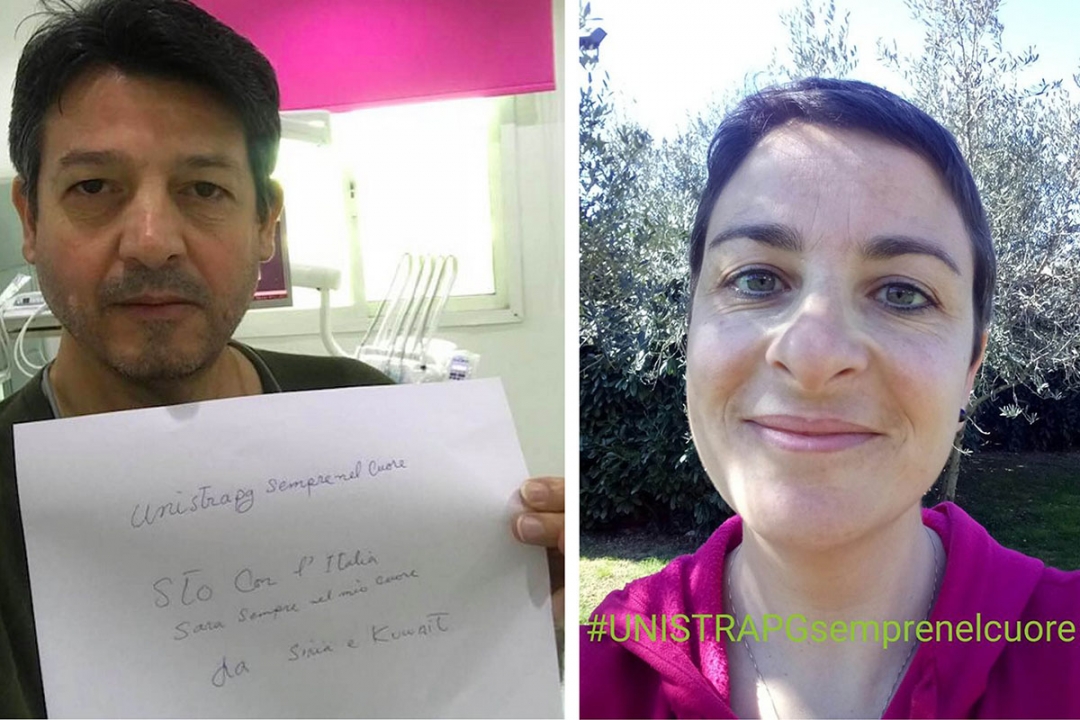 unistrapg sempre nel cuore
STO Con l'Italia
Sara sempre nel mio cuore
da Siria e Kuwait
#UNISTRAPGsemprenelcuore